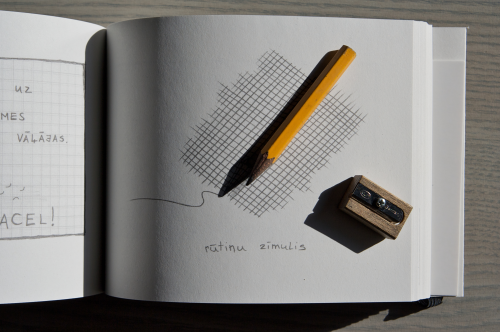 UZ
MES
VĀĻĀJAS
ACEL!
rūtiņu zīmulis